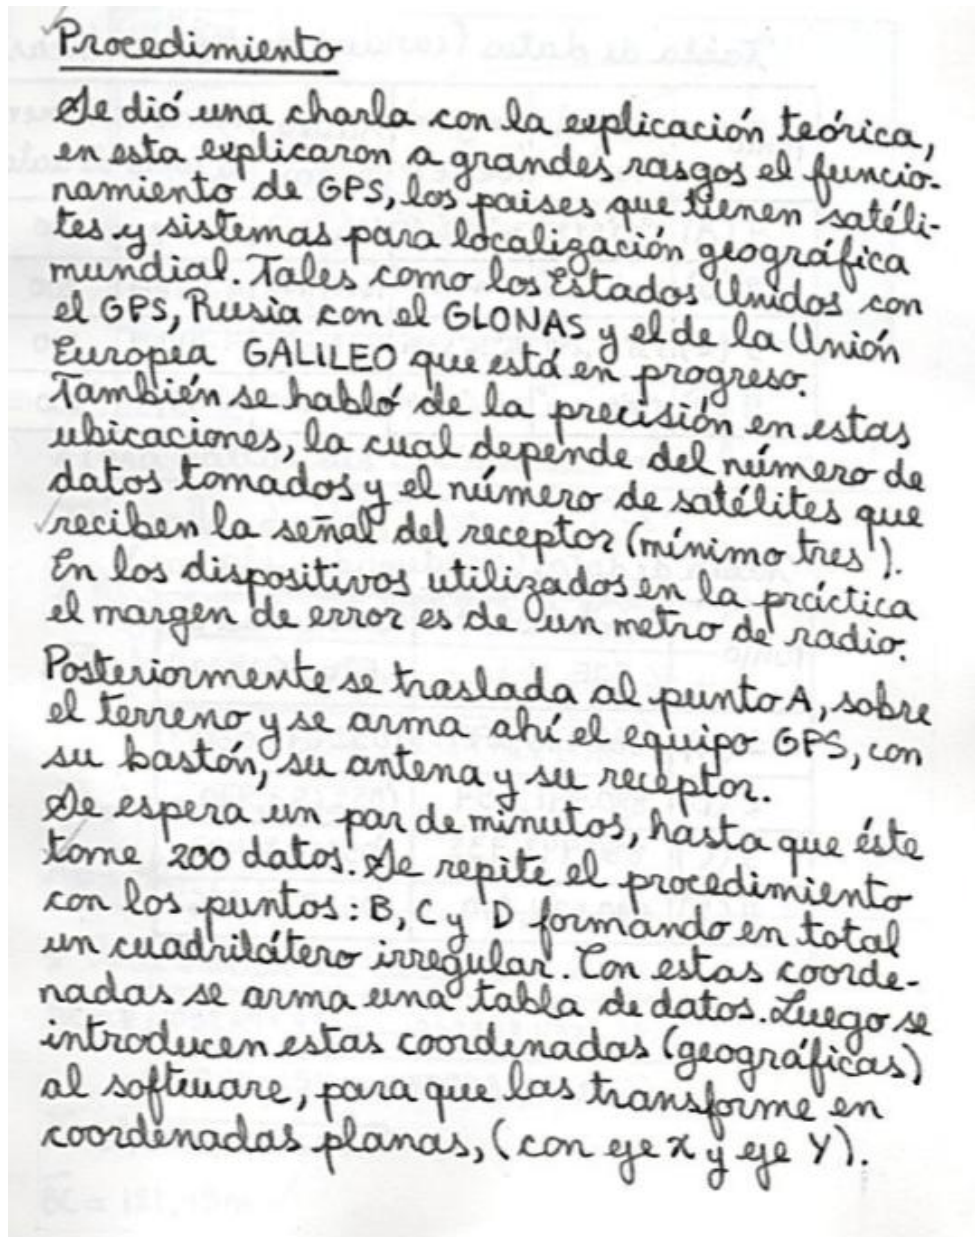 Procedimiento
Se dió una charla con la explicación teórica,
en esta explicaron a grandes rasgos el funcio-
namiento de GPS, los paises que tienen satéli-
tes y sistemas para localización geográfica
mundial. Tales como los Estados Unidos con
el GPS, Rusia con el GLONAS y el de la Unión
Europea GALILEO que está en progreso.
También se habló de la precisión en estas
ubicaciones, la cual depende del número de
datos tomados y el número de satélites que
reciben la señal del receptor (mínimo tres).
En los dispositivos utilizados en la práctica
el margen de error es de un metro de radio.
Posteriormente se traslada al punto A, sobre
el terreno y se arma ahí el equipo GPS, con
su bastón, su antena y su receptor.
Se espera un par de minutos, hasta que éste
tome 200 datos. Se repite el procedimiento
con los puntos: B, C y D formando en total
un cuadrilátero irregular. Con estas coorde-
nadas se arma una tabla de datos. Luego se
introducen estas coordenadas (geográficas)
al software, para que las transforme en
coordenadas planas, (con eje x y eje Y).